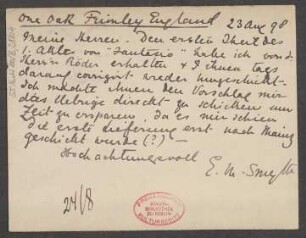 One Oak Frimley England 23 Aug 98
Meine Herren. Den ersten Theil des
1. Aktes von "Fantasio" habe ich von d.
Herrn Röder erhalten & Ihnen tags
darauf corrigirt wieder hingeschickt.
Ich möchte Ihnen den Vorschlag mir
das Uebrige direckt zu schicken um
Zeit zu ersparen, da es mir schien
die erste Lieferung erst nach Mainz
geschickt wurde (?) —
Hochachtungsvoll
E. M. Smyth
24/8